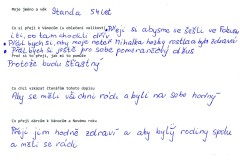 Moje jméno a věk Standa 54 let
Co si přeji k Vánocům (v ostatní velikosti):
Přeji si abysme se sešli ve Fokusu
ti, co tam chodili dřív
Přál bych si, aby moje neteř Michalka hezky rostla a byla zdravá
Přál bych si ještě pro sebe pomerančový džus
Proč si to, jak mi to pomůže
Protože budu šťastný
Chci vzkázat čtenářům tohoto dopisu
Aby se měli všichni rádi a byli na sebe hodný
Co přeji dárkům k Vánocům a Novému roku
Přeji jim hodně zdraví a aby byly rodiny spolu
a měli se rádi